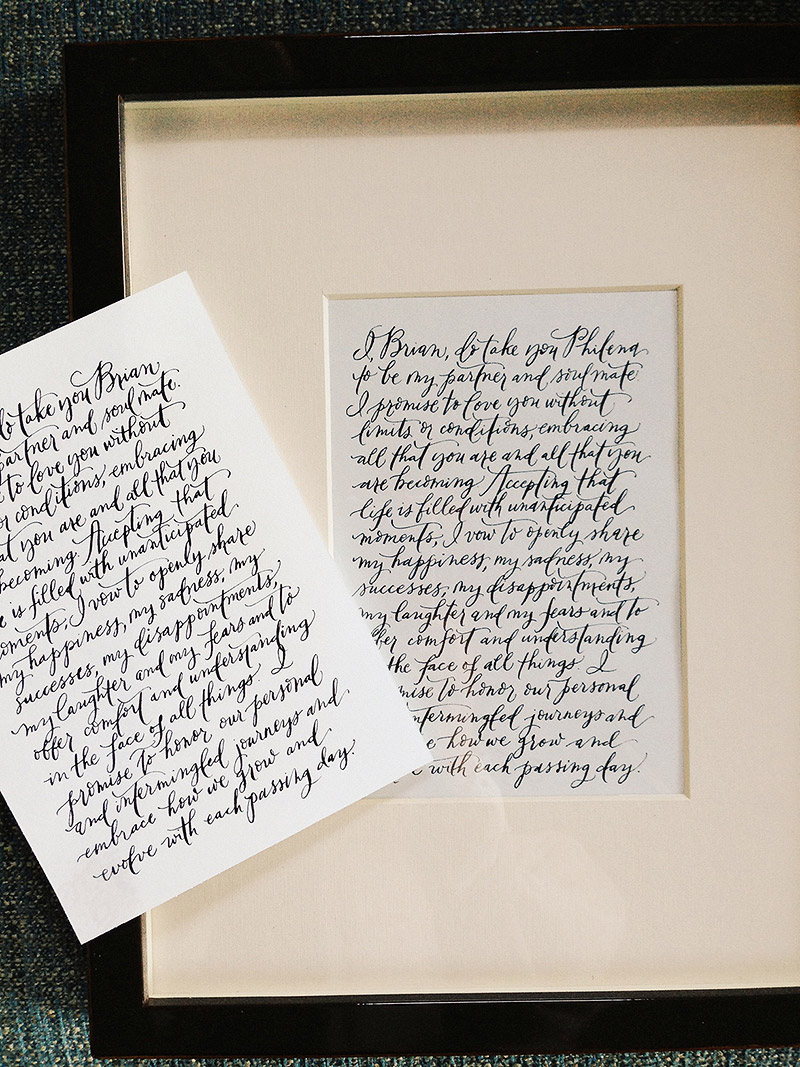 do take you Brian
partner and soul mate.
to love you without
or conditions, embracing
at you are and all that you
becoming. Accepting that
e is filled with unanticipated
oments, I vow to openly share
my happiness, my sadness, my
successes, my disappointments,
my laughter and my fears and to
offer comfort and understanding
in the face of all things. I
promise to honor our personal
and intermingled journeys and
embrace how we grow and
evolve with each passing day.
I, Brian, do take you Philena
to be my partner and soul mate.
I promise to love you without
limits or conditions, embracing
all that you are and all that you
are becoming. Accepting that
life is filled with unanticipated
moments, I vow to openly share
my happiness, my sadness, my
successes, my disappointments,
my laughter and my fears and to
ffer comfort and understanding
the face of all things. I
mise to honor our personal
intermingled journeys and
e how we grow and
e with each passing day.